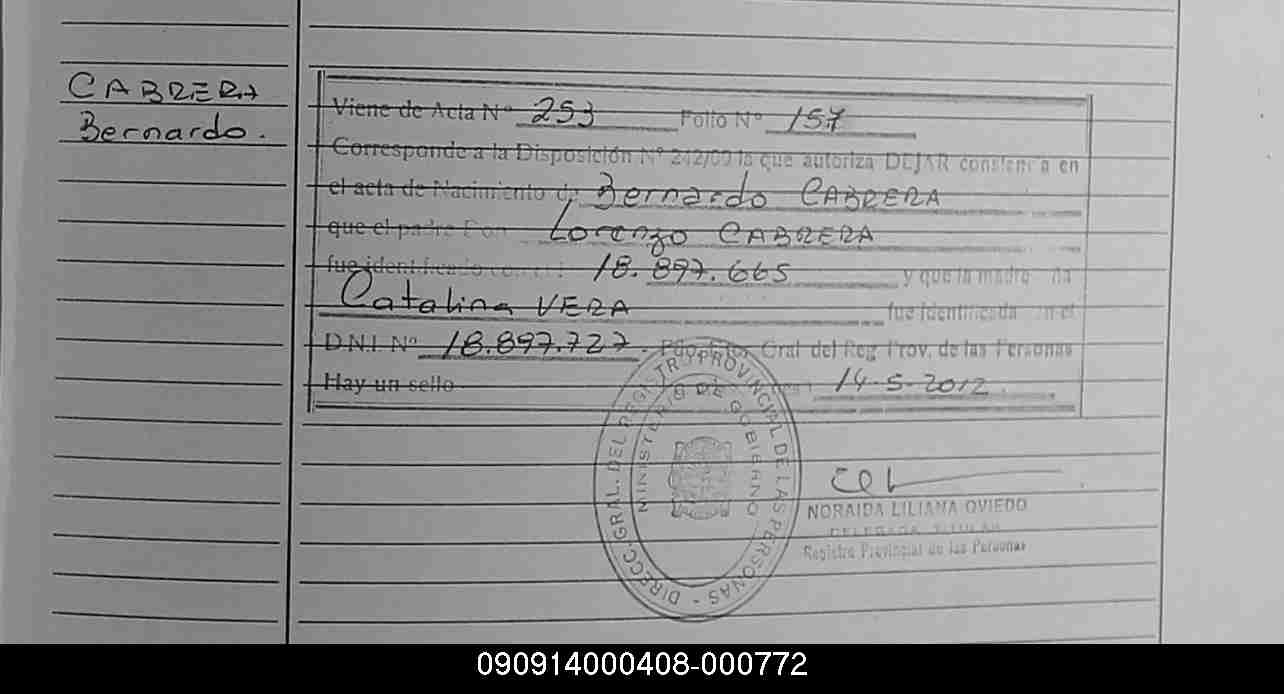 CABRERA
Bernardo.
Viene de Acta Nº 253 Folio Nº 157
Corresponde a la Disposición Nº 242/00 la que autoriza DEJAR constancia en
el acta de Nacimiento de Bernardo CABRERA
que el padre Don Lorenzo CABRERA
fue identificado con 18.897.665 y que la madre
Catalina VERA fue identificada en el
D.N.I. Nº 18.897.727 Gral del Reg Prov. de las Personas
Hay un sello 14-5-2012
DIRECC. GRAL. DEL REGISTRO PROVINCIAL DE LAS PERSONAS -
MINISTERIO DE GOBIERNO
NORAIDA LILIANA OVIEDO
DELEGADA TITULAR
Registro Provincial de las Personas
090914000408-000772